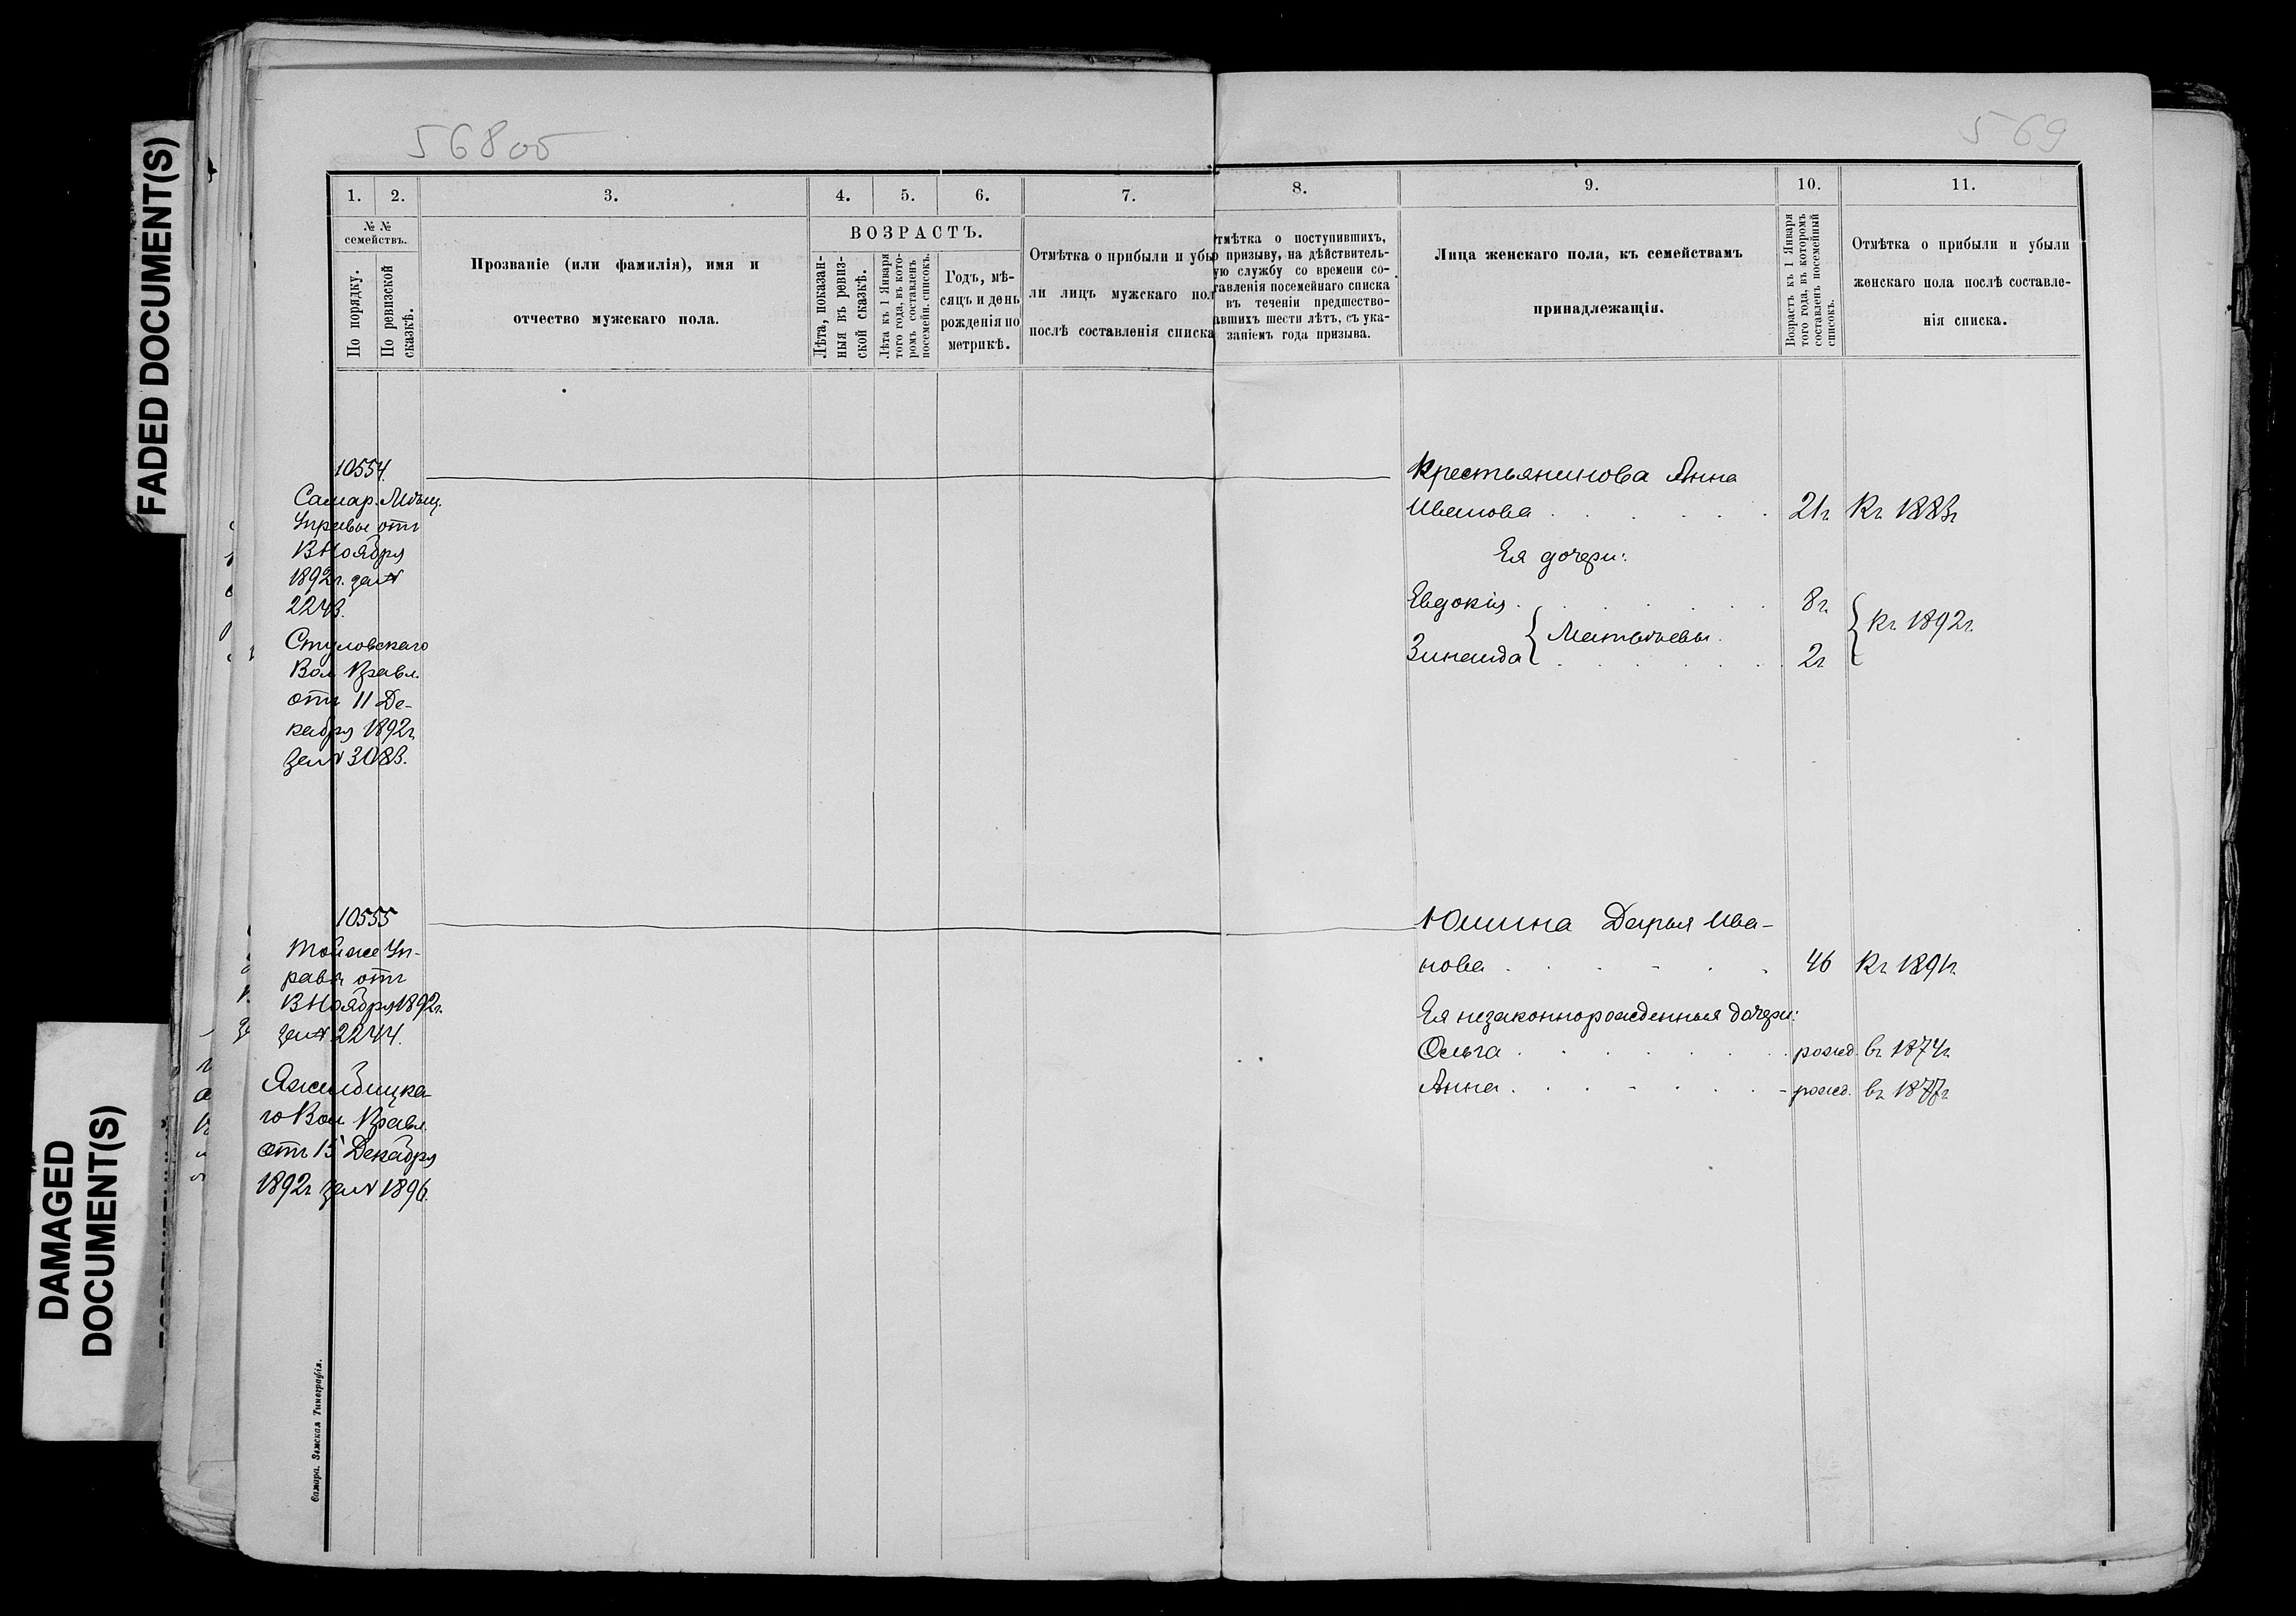 FADED DOCUMENT(S)
DAMAGED
DOCUMENT(S)
568об
569
1.
2.
3.
4.
5.
6.
7.
8.
9.
10.
11.
№ №
семействъ.
По порядку.
По ревизской
сказкѣ.
Прозваніе (или фамилія), имя и
отчество мужскаго пола.
ВОЗРАСТЪ.
Лѣта, показан-
ныя въ ревиз-
ской сказкѣ.
Лѣта къ 1 Января
того года, въ кото-
ромъ составленъ
посемейн. списокъ.
Годъ, мѣ-
сяцъ и день
рожденія по
метрикѣ.
Отмѣтка о прибыли и убы
ли лицъ мужскаго пол
послѣ составленія списка
тмѣтка о поступившихъ,
о призыву, на дѣйствитель-
ую службу со времени со-
тавленія посемейнаго списка
въ теченіи предшество-
авшихъ шести лѣтъ, съ ука-
заніемъ года призыва.
Лица женскаго пола, къ семействамъ
принадлежащія.
Возрастъ къ 1 Января
того года, въ которомъ
составленъ посемейный
списокъ.
Отмѣтка о прибыли и убыли
женскаго пола послѣ составле-
нія списка.
10554.
Самар. Мѣщ.
Управы отъ
3 Ноября
1892г. за №
2243.
Вол. Правл.
отъ 11 Де-
кабря 1892г
за № 3083.
Крестьянинова Анна
Иванова 21г Къ 1883г
Ея дочери:
Евдокія 8г
Матвѣевы. Къ 1892г
Зинаида 2г
10555
Той же Уп-
равы отъ
3 Ноября 1892г.
за № 2244.
го Вол. Правл.
отъ 15 Декабря
1892г за № 1896.
Юшина Дарья Ива-
нова 46 Къ 1891г
Ея незаконнорожденныя дочери:
Ольга рожд. въ 1874г
Анна рожд. въ 1877г
Самара. Земская Типографія.